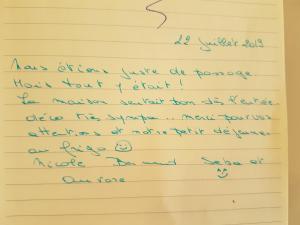 22 Juillet 2019
Nous étions juste de passage.
Mais tout y était !
La maison sentait bon dès l'entrée
déco très sympa .. merci pour vos
attentions et notre petit déjeuner
au frigo
Nicole Bernard Seba et
Aurore